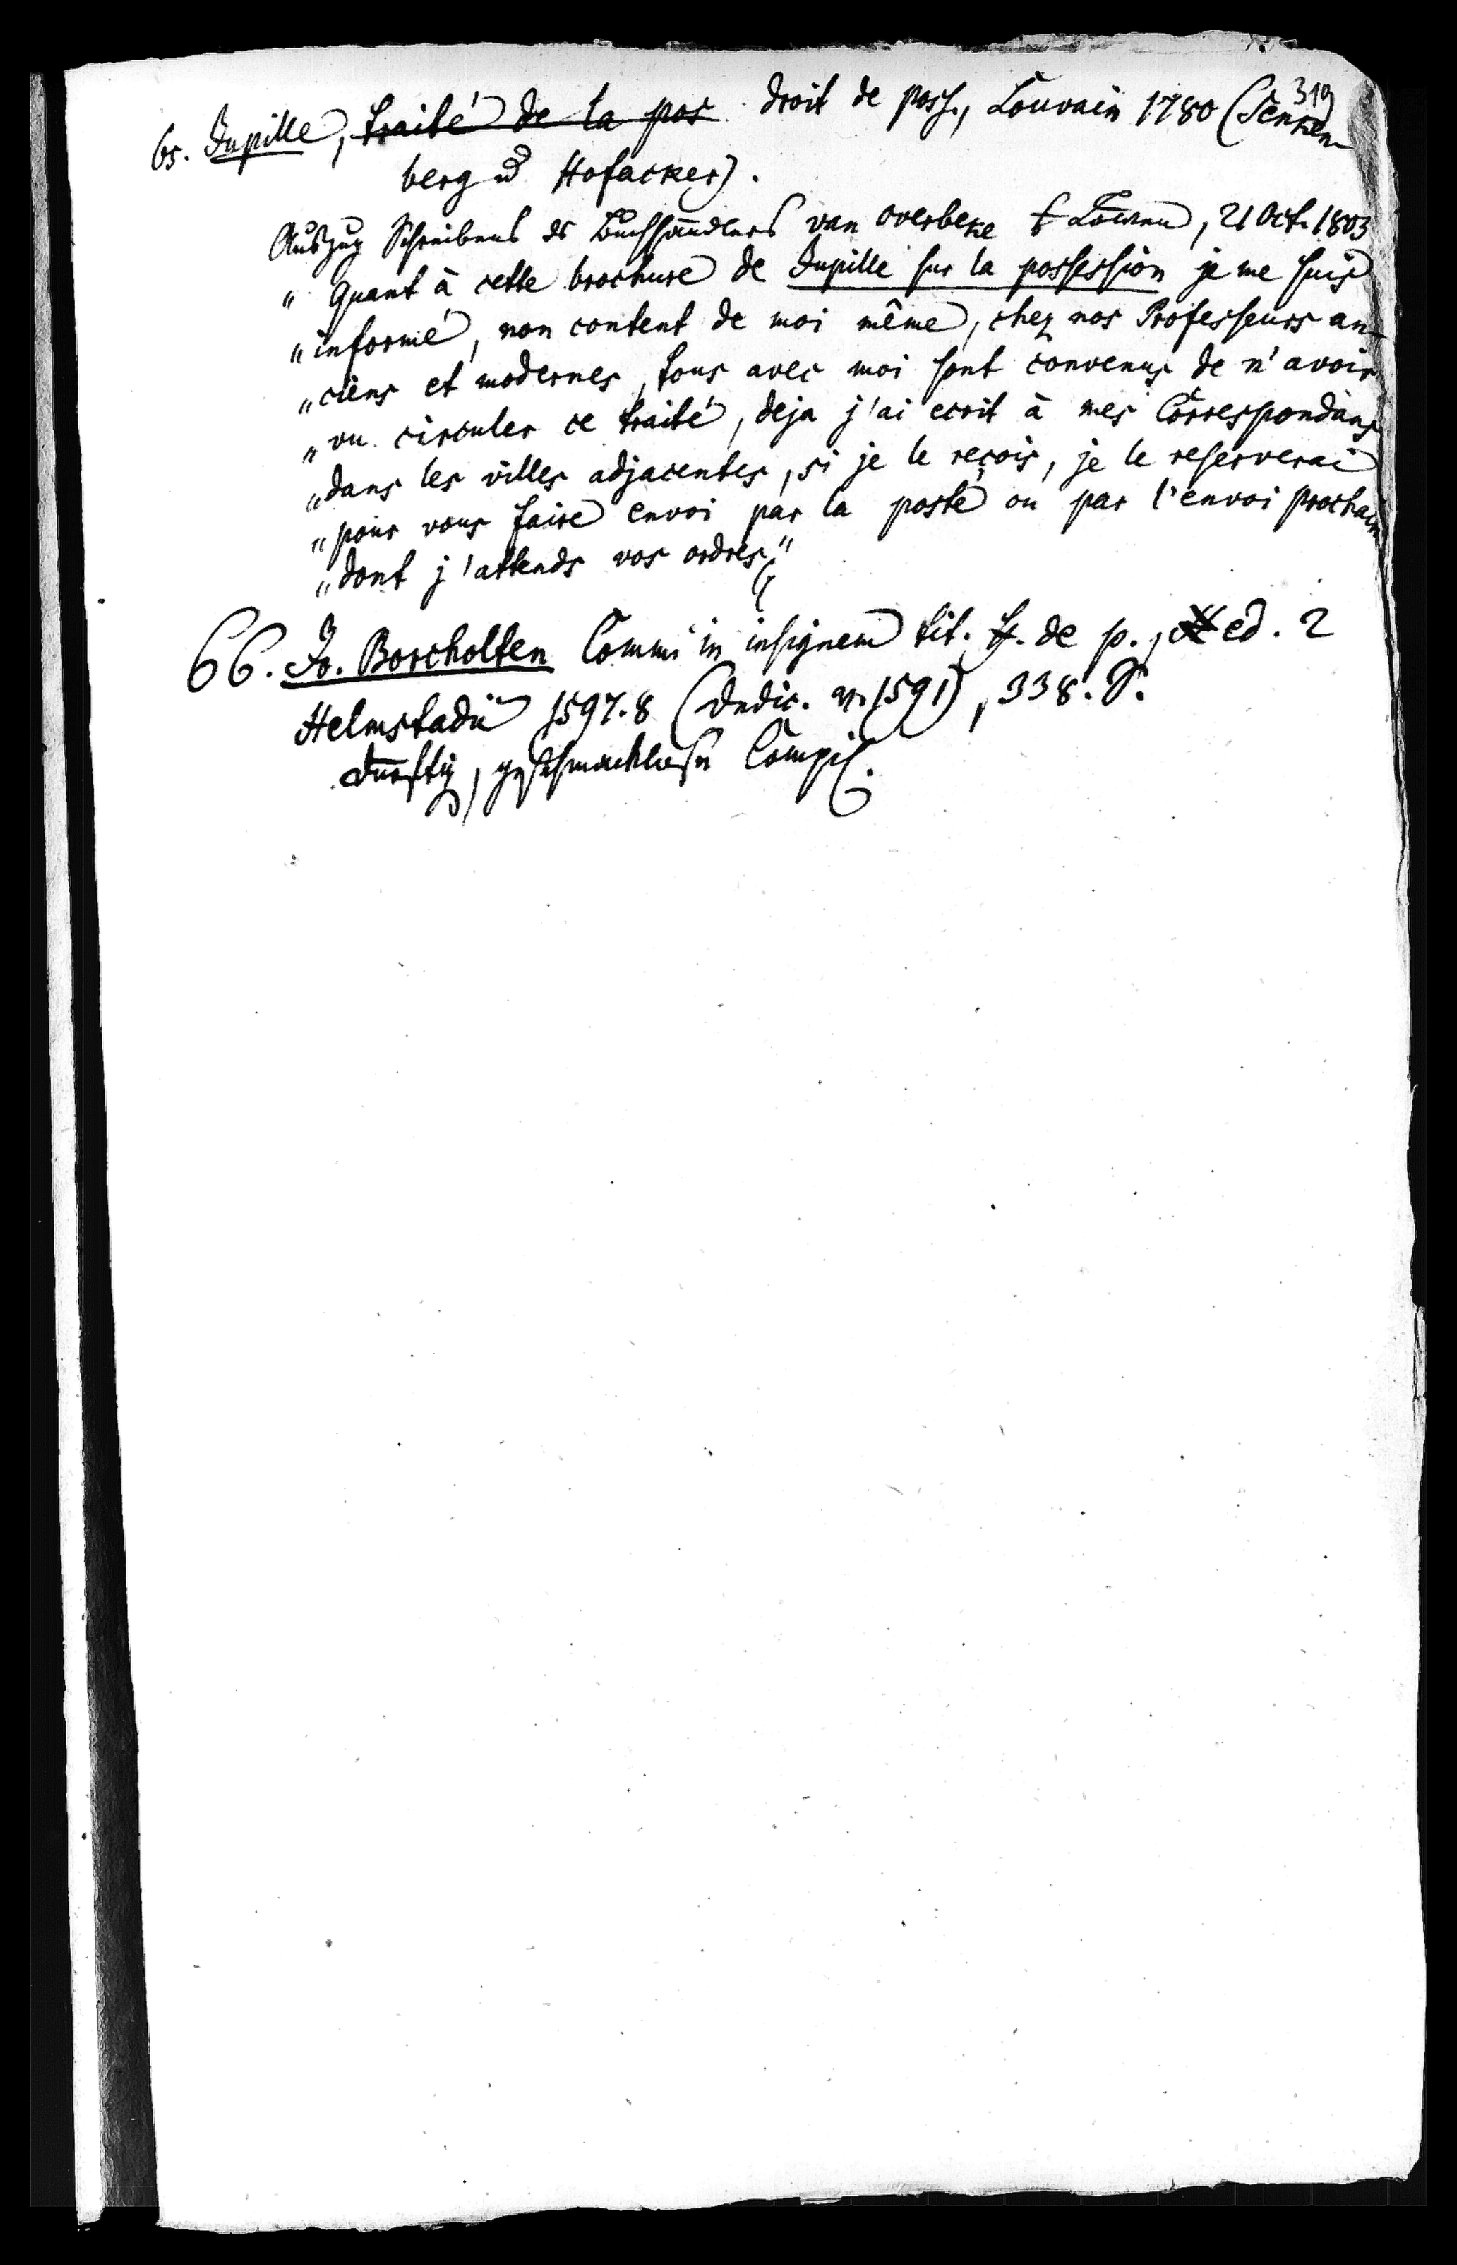 319
65. Jupille, traité de la pos droit de poss., Louvain 1780 (Senken-
berg u Hofacker).
Auszug Schreibens ds Buchhändlers van Overbeke Löwen, 21 Oct. 1803
„ Quant à cette brochure de Jupille sur la possession je me suis
„ informé, non content de moi même, chez nos Professeurs an-
„ ciens et modernes, tous avec moi sont convenus de n'avoir
„ vu circuler ce traité, deja j'ai ecrit à mes Correspondans
„ dans les villes adjacentes, si je le reçois, je le reserverai
„ pour vous faire envoi par la poste ou par l'envoi prochain
„ dont j'attends vos ordres"
66. Jo. Borcholten Comm. in insignem tit. ff. de p., ed. 2
Helmstadii 1597. 8 (Dedic. v. 1591), 338. S.
dürftig, geschmacklose Compil.